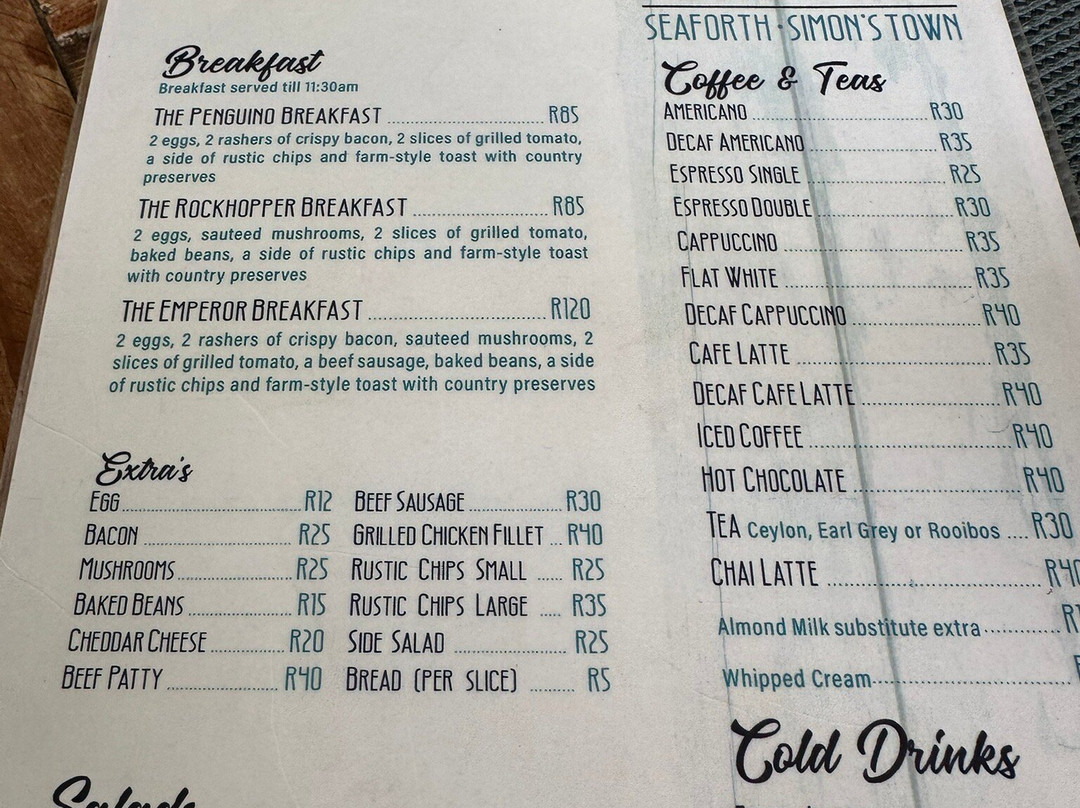 SEAFORTH · SIMON'S TOWN
Breakfast
Breakfast served till 11:30am
THE PENGUINO BREAKFAST R85
2 eggs, 2 rashers of crispy bacon, 2 slices of grilled tomato,
a side of rustic chips and farm-style toast with country
preserves
THE ROCKHOPPER BREAKFAST R85
2 eggs, sauteed mushrooms, 2 slices of grilled tomato,
baked beans, a side of rustic chips and farm-style toast
with country preserves
THE EMPEROR BREAKFAST R120
2 eggs, 2 rashers of crispy bacon, sauteed mushrooms, 2
slices of grilled tomato, a beef sausage, baked beans, a side
of rustic chips and farm-style toast with country preserves
Extra's
EGG R12
BACON R25
MUSHROOMS R25
BAKED BEANS R15
CHEDDAR CHEESE R20
BEEF PATTY R40
BEEF SAUSAGE R30
GRILLED CHICKEN FILLET R40
RUSTIC CHIPS SMALL R25
RUSTIC CHIPS LARGE R35
SIDE SALAD R25
BREAD (PER SLICE) R5
Coffee & Teas
AMERICANO R30
DECAF AMERICANO R35
ESPRESSO SINGLE R25
ESPRESSO DOUBLE R30
CAPPUCCINO R35
FLAT WHITE R35
DECAF CAPPUCCINO R40
CAFE LATTE R35
DECAF CAFE LATTE R40
ICED COFFEE R40
HOT CHOCOLATE R40
TEA Ceylon, Earl Grey or Rooibos R30
CHAI LATTE R40
Almond Milk substitute extra
Whipped Cream
Cold Drinks